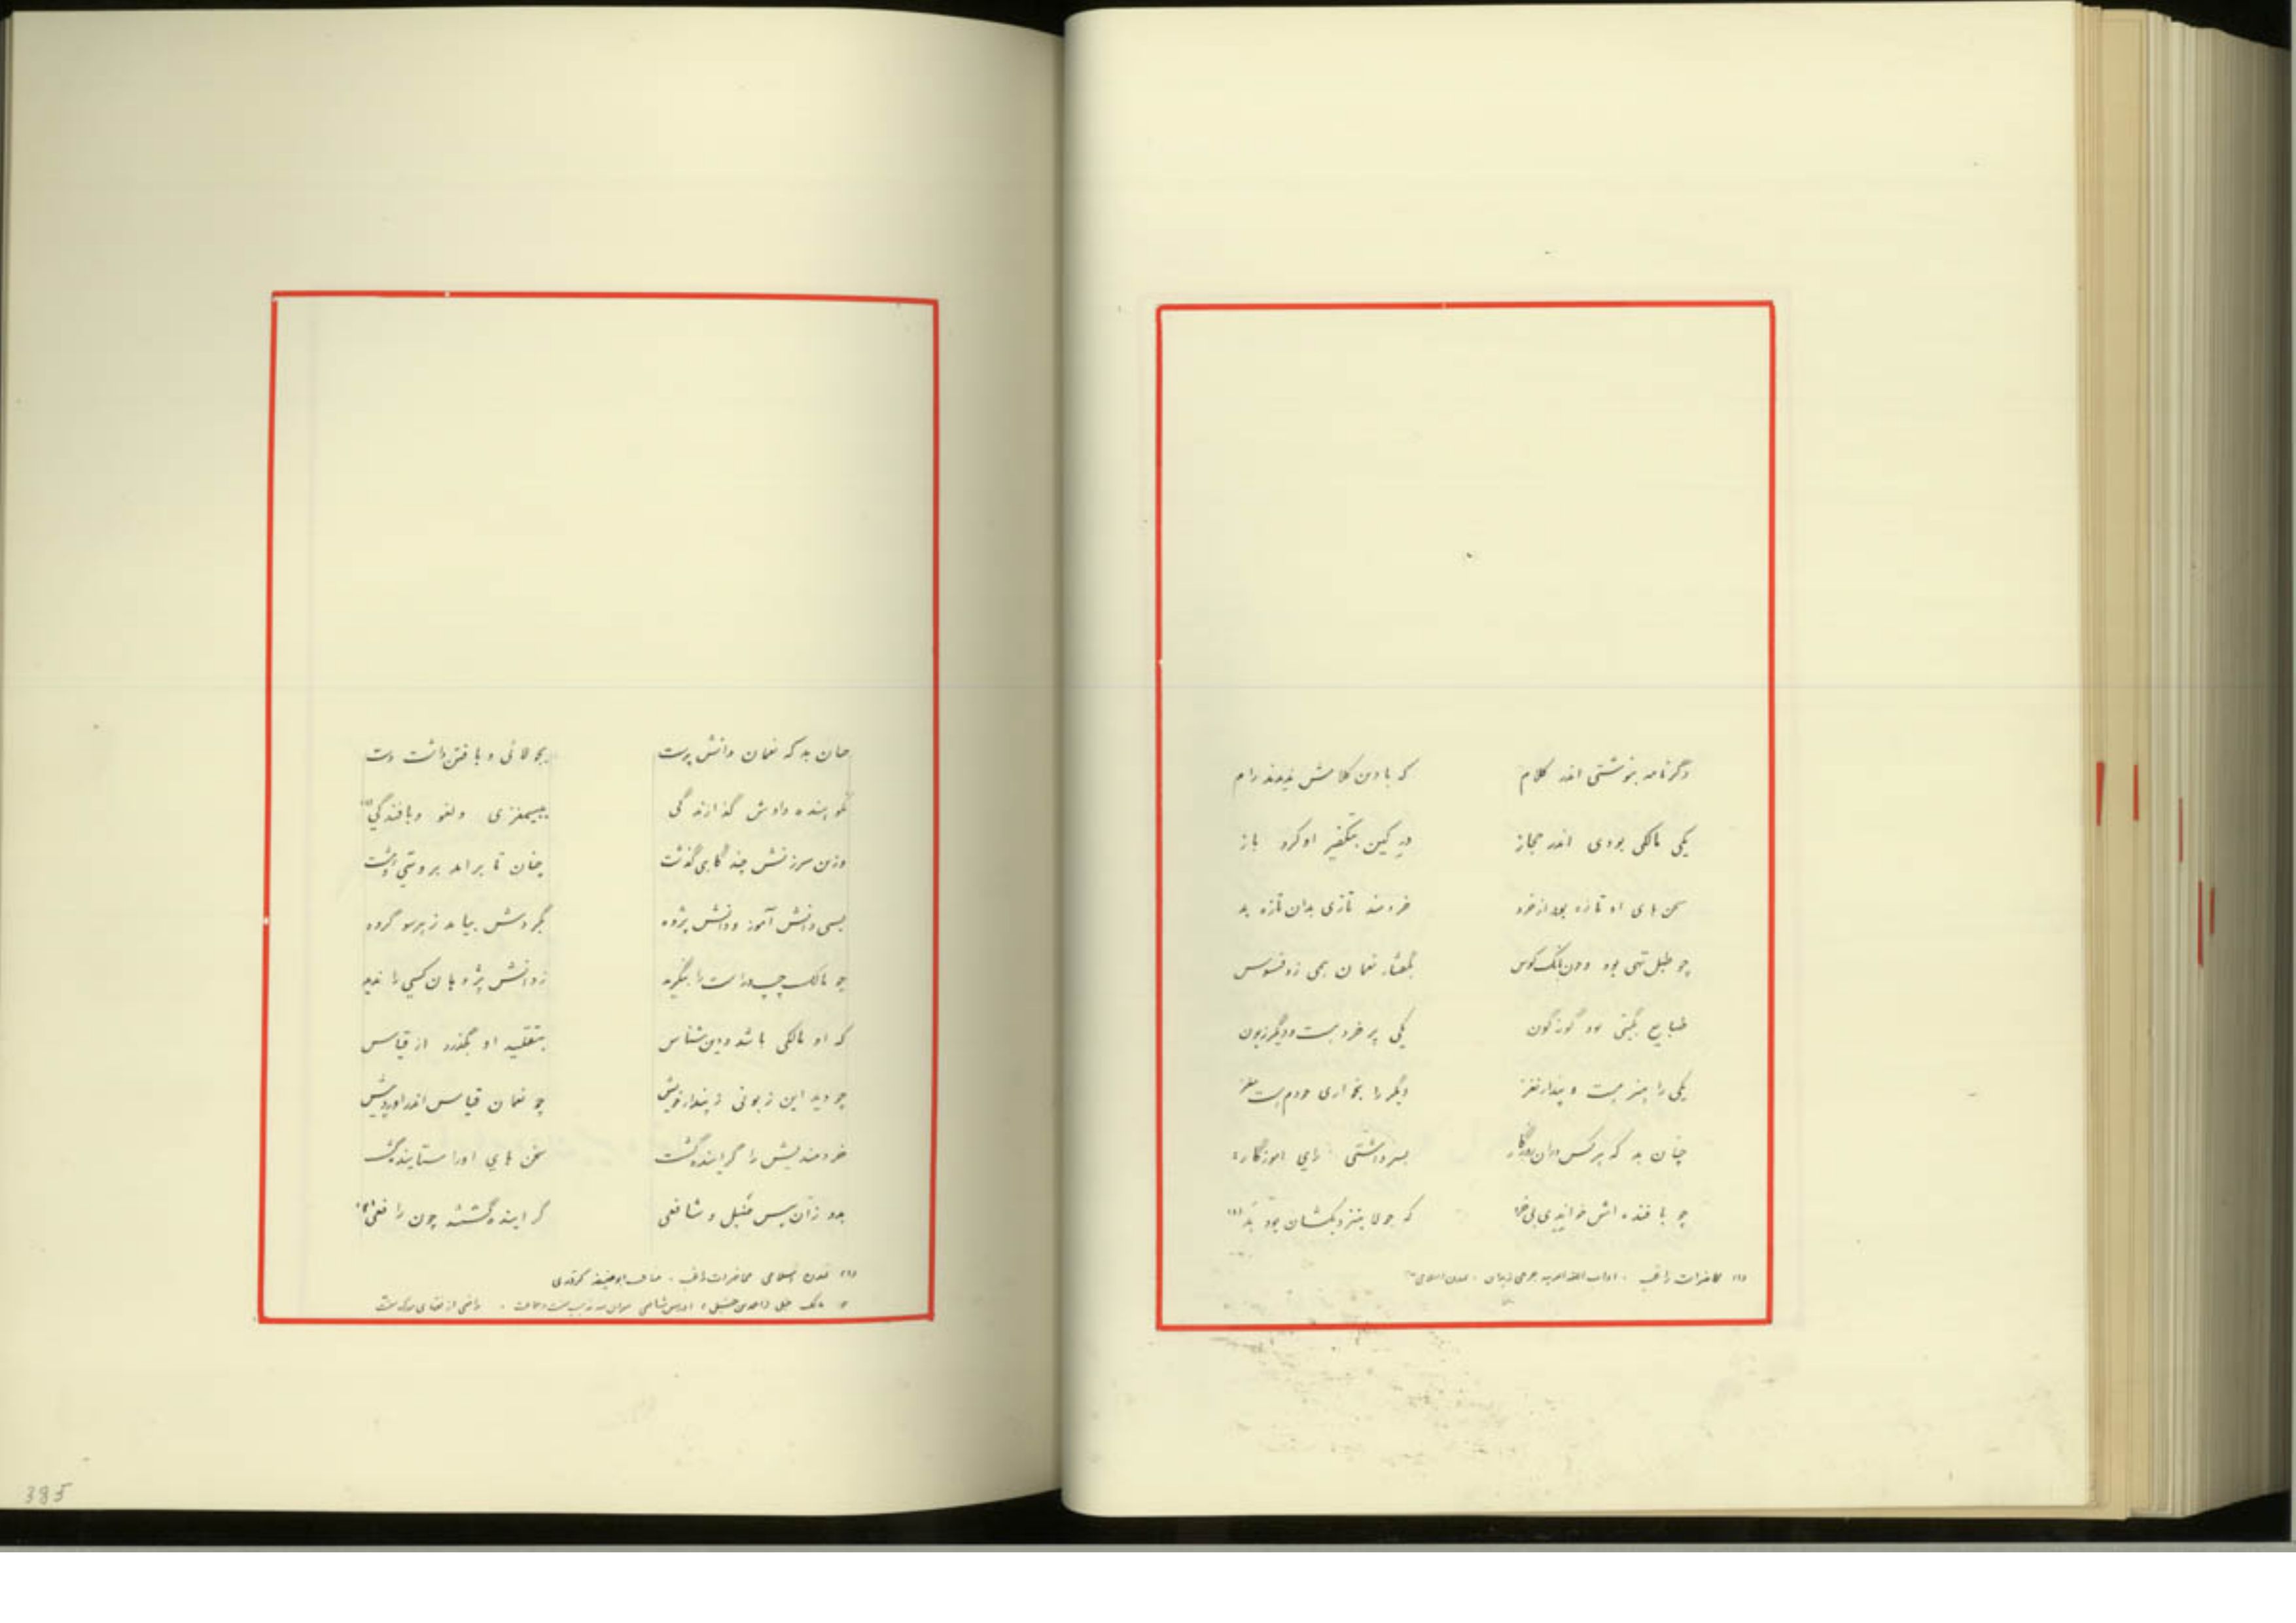 دگر نامه بنوشتی اندر کلام که با دین کلامش ندیدند رام
یکی مالکی بودی اندر حجاز در کین بتکفیر او کرد باز
سخن های او تازه بود از خرد خردمند تازی بدان تازه بد
چو طبل تهی بود و چون بانگ کوس بگفتار نعمان همی زد فسوس
طبایع بگیتی بود گونه گون یکی پر خرد هست و دیگر زبون
یکی را هنر هست و پندار نغز دیگر را بخواری
چنان بد که هر کس در آن روزگار بسر داشتی رای آموزگار
چو بافنده اش خواندی بی خرد که جولا بنزدیکشان بود بد (۱)
(۱) محاضرات راغب . اداب اللغه العربیه جرجی زیدان . تمدن اسلامی
چنان بد که نعمان دانش پرست بجولائی و بافتن داشت دست
نکوهنده دادش گذارندگی ببیمغزی و لغو و بافندگی (۱)
وزین سرزنش چند گاهی گذشت چنان تا برآمد برو تی و دشت
بسی دانش آموز و دانش پژوه بگردش بیامد ز هر سو گروه
چو مالک چپ و راست را بنگرید ز دانش پژوهان کسی را ندید
که او مالکی باشد و دین شناس بتقلید او بگذرد از قیاس
چو دید این زبونی ز پندار خویش چو نعمان قیاس اندر آورد پیش
خردمندیش را گراینده گشت سخن های او را ستاینده گشت
بدو زان سپس حنبل و شافعی گراینده گشتند چون رافعی (۲)
(۱) تمدن اسلامی محاضرات راغب . مناقب ابوحنیفه کردری